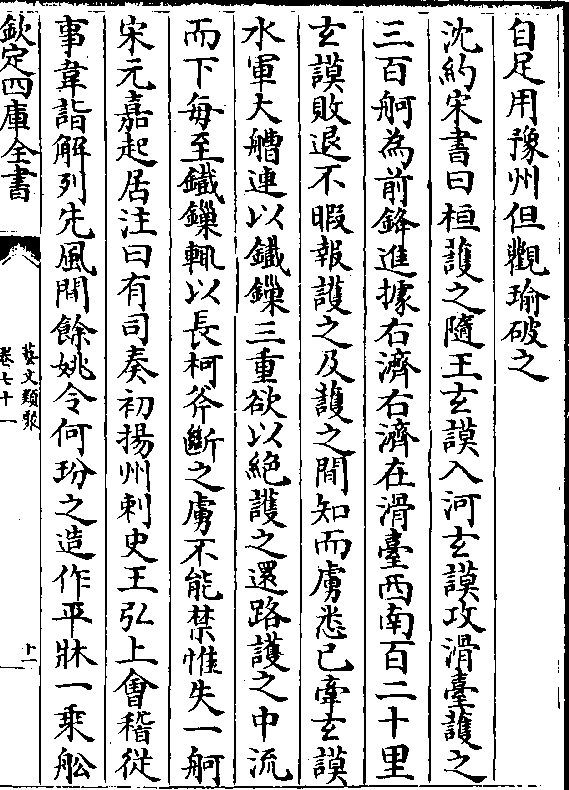 自足用豫州但觀瑜破之
沈約宋書曰桓䕶之隨王玄謨入河玄謨攻滑臺䕶之
三百舸為前鋒進據右濟右濟在滑臺西南百二十里
玄謨敗退不暇報䕶之及䕶之聞知而虜悉已牽玄謨
水軍大艚連以鐵鏁三重欲以絕䕶之還路䕶之中流
而下每至鐵鏁輒以長柯斧斷之虜不能禁惟失一舸
宋元嘉起居注曰有司奏初揚州刺史王弘上會稽從
事韋詣解列先風聞餘姚令何玢之造作平牀一乘舩
欽定四庫全書
藝文類聚
卷七十一
十二